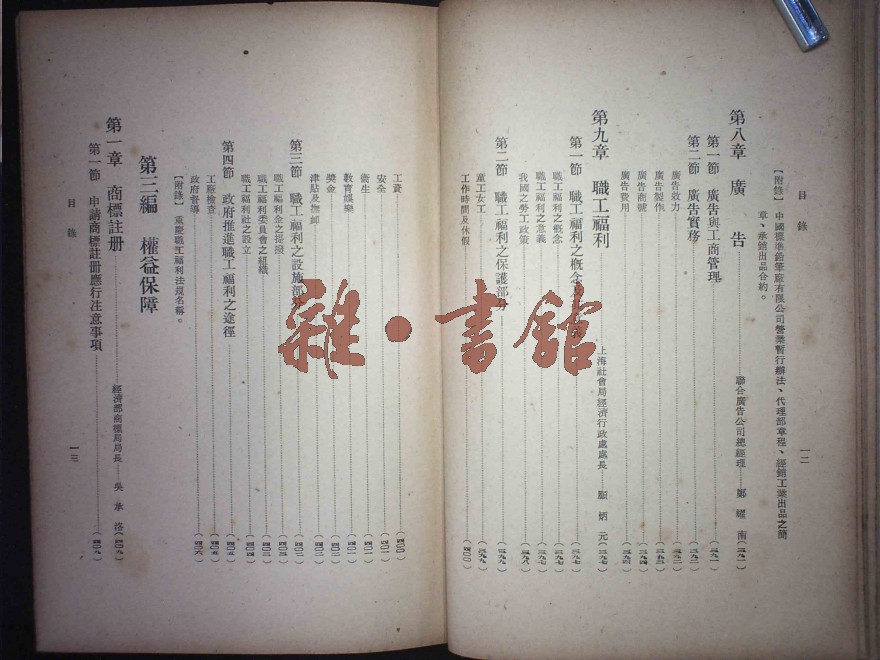 目錄
一二
【附錄】中國標準鉛筆廠有限公司營業暫行辦法、代理部章程、經銷工業出品之簡
章、承銷出品合約。
第八章 廣告 聯合廣告公司總經理 鄭耀南(三九一)
第一節 廣告與工商管理(三九一)
第二節 廣告實務(三九二)
廣告效力(三九二)
廣告製作(三九三)
廣告商號(三九四)
廣告費用(三九四)
第九章 職工福利 上海社會局經濟行政處處長 顧炳元(三九七)
第一節 職工福利之概念(三九七)
職工福利之概念(三九七)
職工福利之意義(三九七)
我國之勞工政策(三九八)
第二節 職工福利之保護部分(三九九)
童工女工(三九九)
工作時間及休假(四〇〇)
工資(四〇〇)
安全(四〇一)
衛生(四〇一)
教育娛樂
獎金
津貼及撫卹
第三節 職工福利之設施部分
職工福利金之提撥
職工福利委員會之組織
職工福利社之設立
第四節 政府推進職工福利之途徑(四〇五)
工廠檢查(四〇五)
政府督導(四〇六)
【附錄】重慶職工福利法規名稱。
第三編 權益保障
第一章 商標註册 經濟部商標局局長 吳承洛(四〇九)
第一節 申請商標註冊應行注意事項(四〇九)
目錄
一三
雜·書館